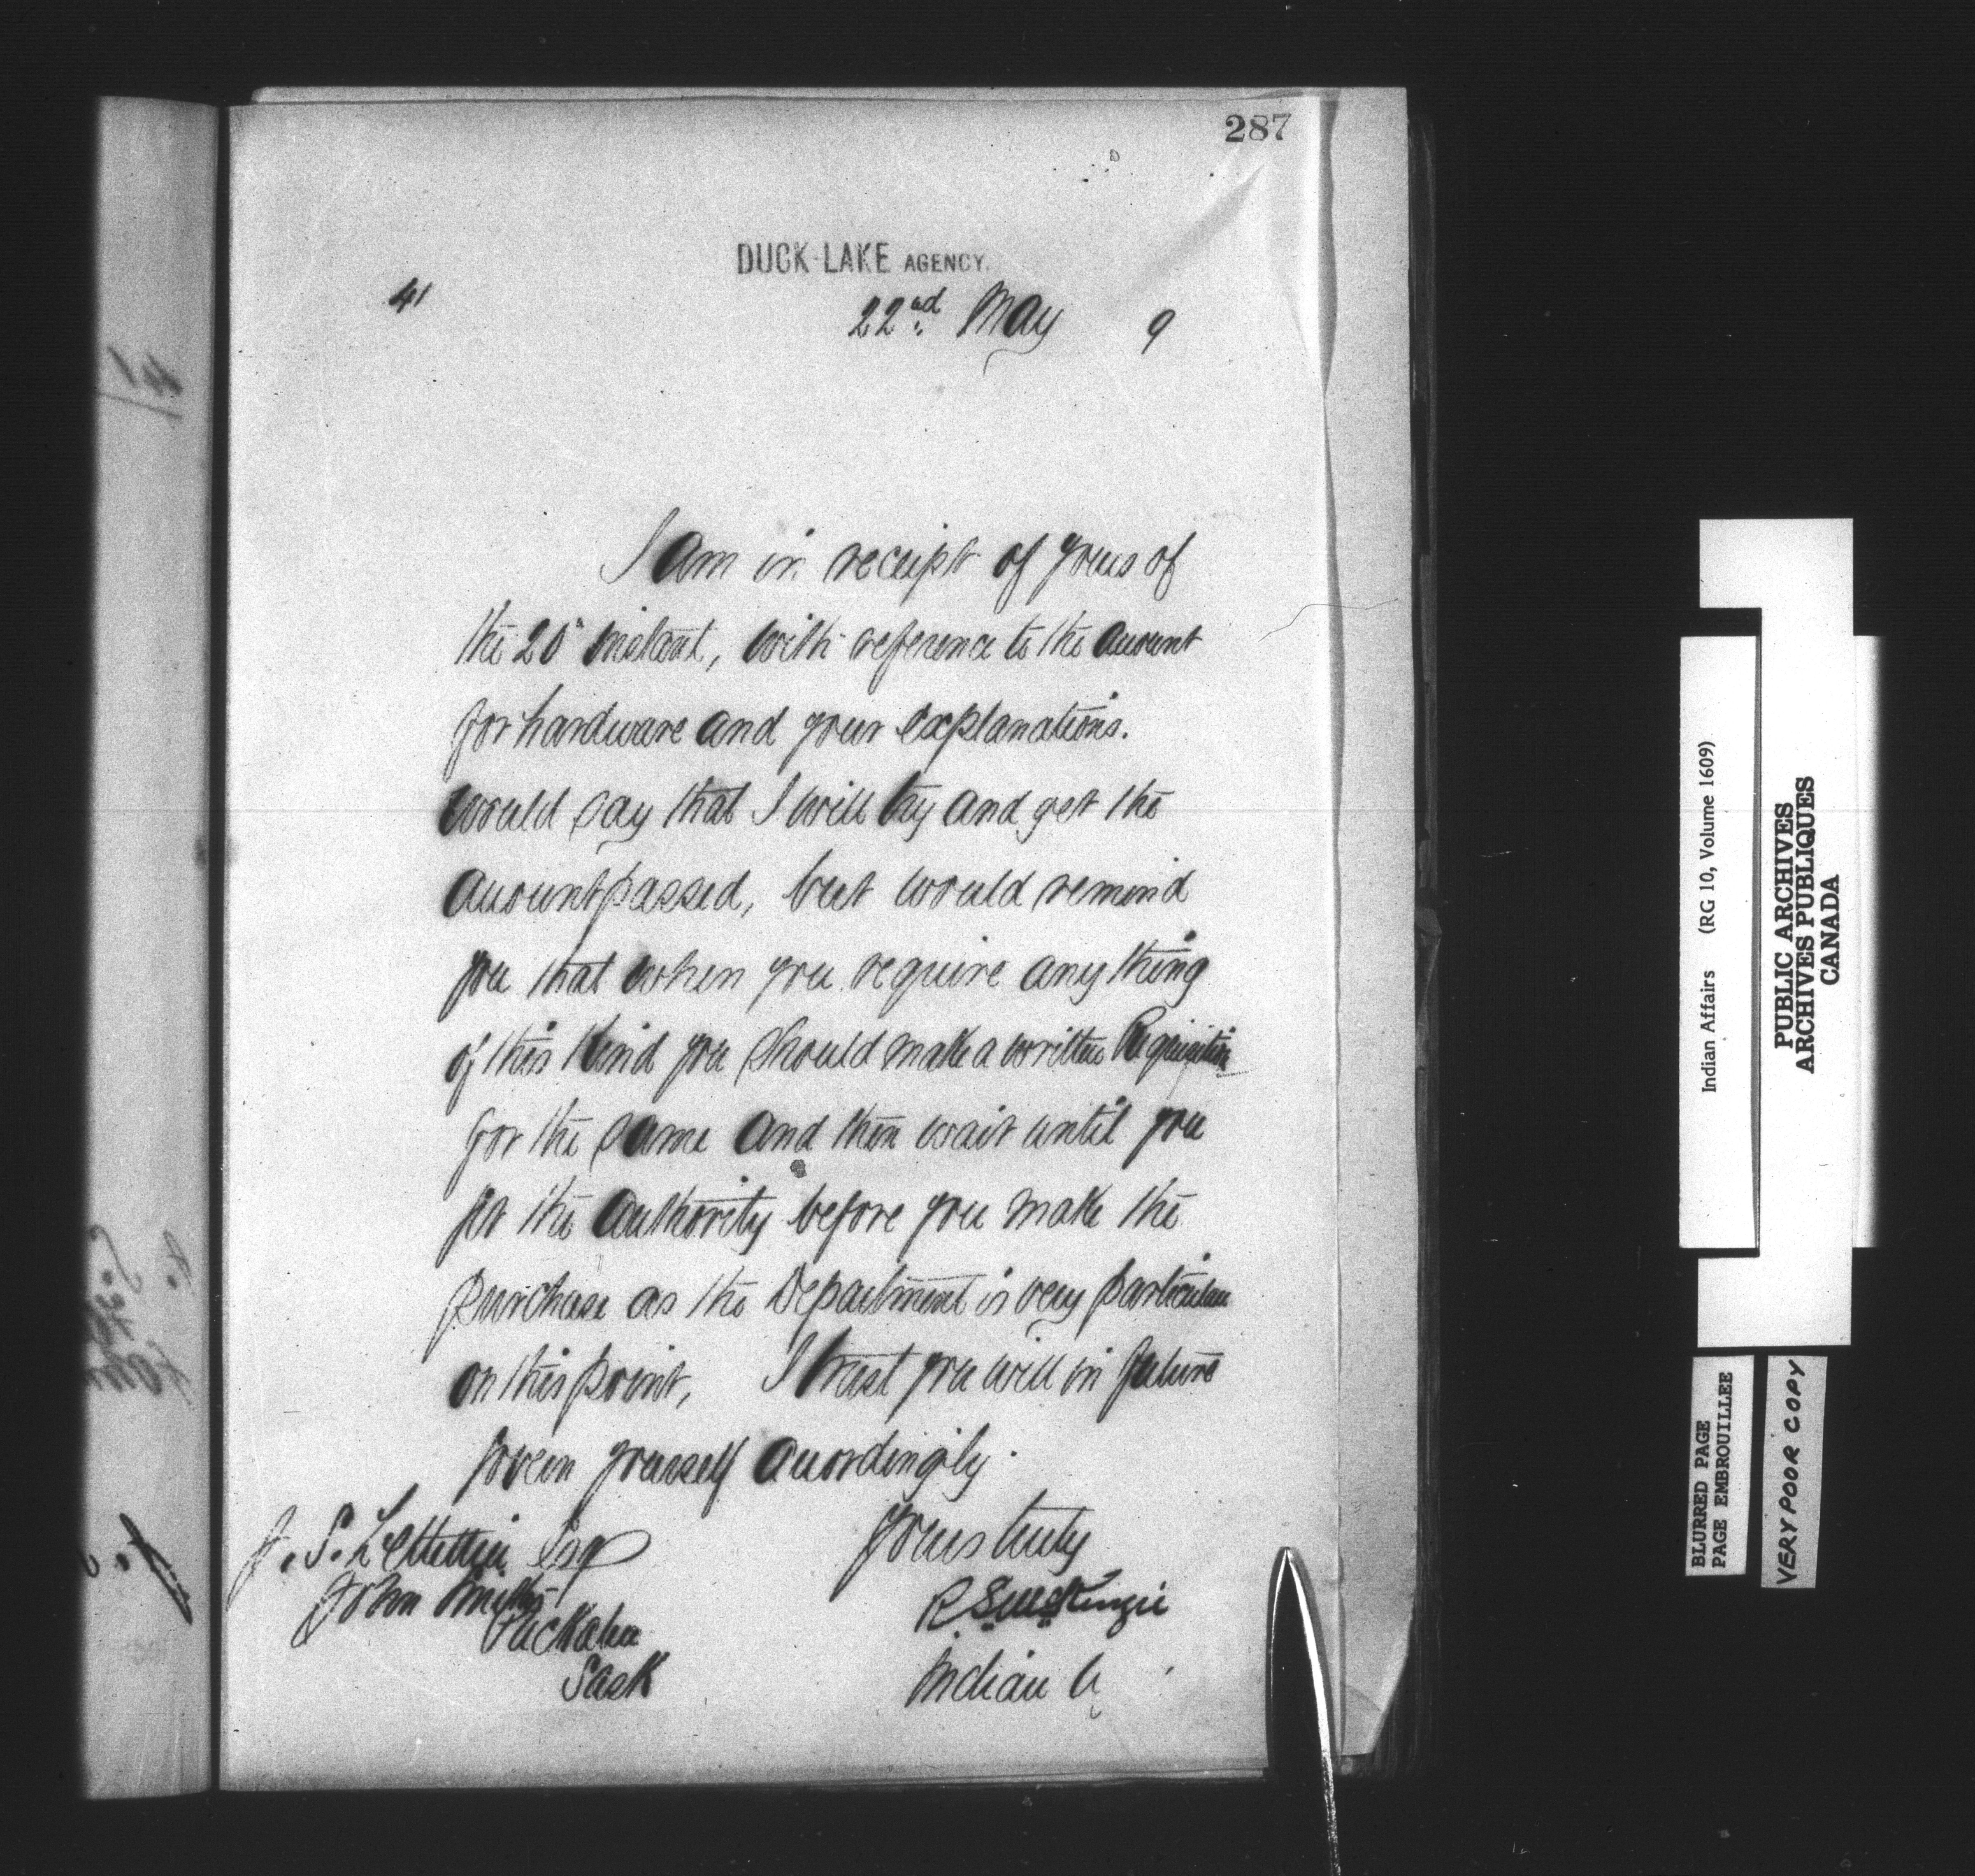 287
DUCK LAKE AGENCY.
41
22nd May 9
I am in receipt of yours of
the 20" instant, with reference to the account
for hardware and your explanations.
Would say that I will try and get the
account passed, but would remind
you that when you require anything
of this kind you should make a written Requisition
for the same and then wait until you
get the authority before you make the
purchase as the Department is very particular
on this point, I trust you will in future
govern yourself accordingly.
Yours truly
J. S. Letellier Esq
RSMcKenzie
John Smiths
Puckahn
Sask
Indian A
Indian Affairs (RG 10, Volume 1609)
PUBLIC ARCHIVES
ARCHIVES PUBLIQUES
CANADA
BLURRED PAGE
PAGE EMBROUILLEE
VERY POOR COPY